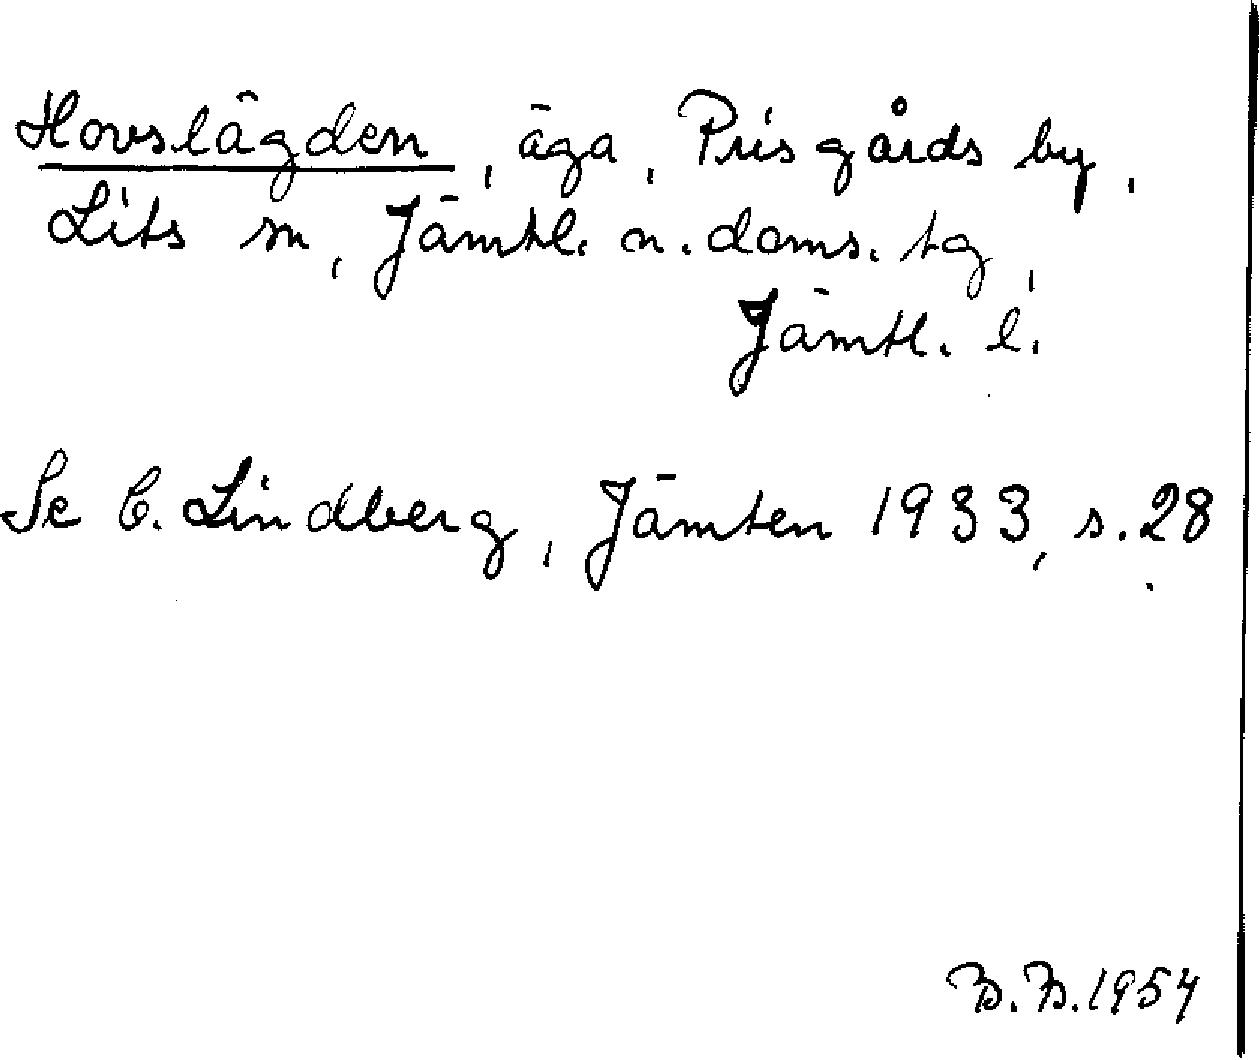 Hovslägden, äga, Prisgårds by,
Lits sn, Jämtl. n. doms. tg,
Jämtl. l.
Se C. Lindberg, Jämten 1933, s. 28.
B.B. 1954